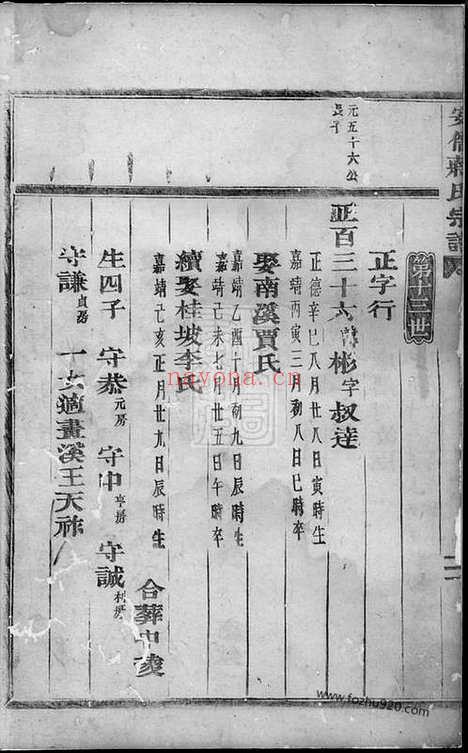 氏宗譜
第十三世
正字行
元五十六公
長子
正百三十六 彬字叔達
正德辛巳八月廿八日寅時生
嘉靖丙寅三月初八日巳時卒
娶南溪賈氏
嘉靖乙酉十月初九日辰時生
嘉靖己未七月廿五日午時卒
續娶桂坡李氏
嘉靖己亥正月廿九日辰時生
合葬中
生四子 守恭元房 守中亨房 守誠利房
守謙貞房 一女適畫溪王天祚
nayona.cn
www.fozhu920.com